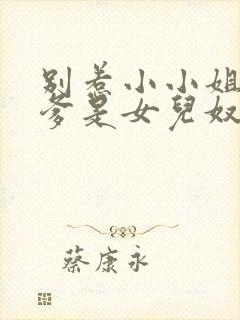 別惹小小姐
爹是女兒奴
蔡康永